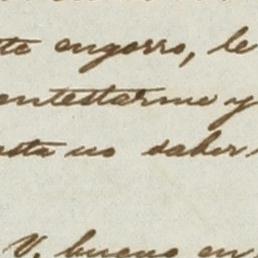 te engorro, le
ntestarme y
sta no saber
V. bueno en